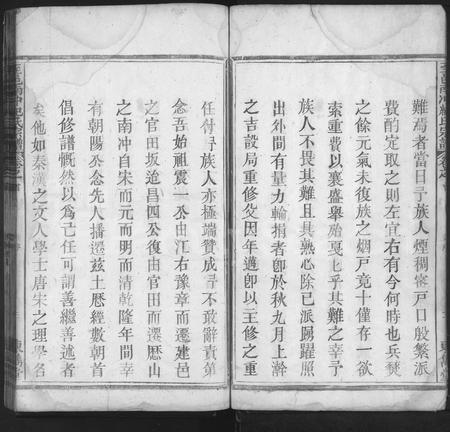 難焉者當日予族人煙稠密戸口殷繁派
費酌定取之則左宜右有今何時也兵燹
之餘元氣未復族之烟戸竟十僅存一欲
索重費以襄盛舉殆戛戛乎其難之幸予
族人不畏其難且具熱心除已派踴躍照
出外間有量力輸捐者卽於秋九月上幹
之吉設局重修夂因年邁卽以王修之重
任付予族人亦極端贊成予不敢辭責第
念吾始祖震一公由江右豫章而遷建邑
之官田坂迨昌四公復由官田而遷厯山
之南冲自宋而元而明而清乾隆年間幸
有朝陽公念先人播遷兹土厯經數朝首
倡修譜慨然以爲己任可謂善繼善述者
矣他如秦漢之文人學士唐宋之理學名